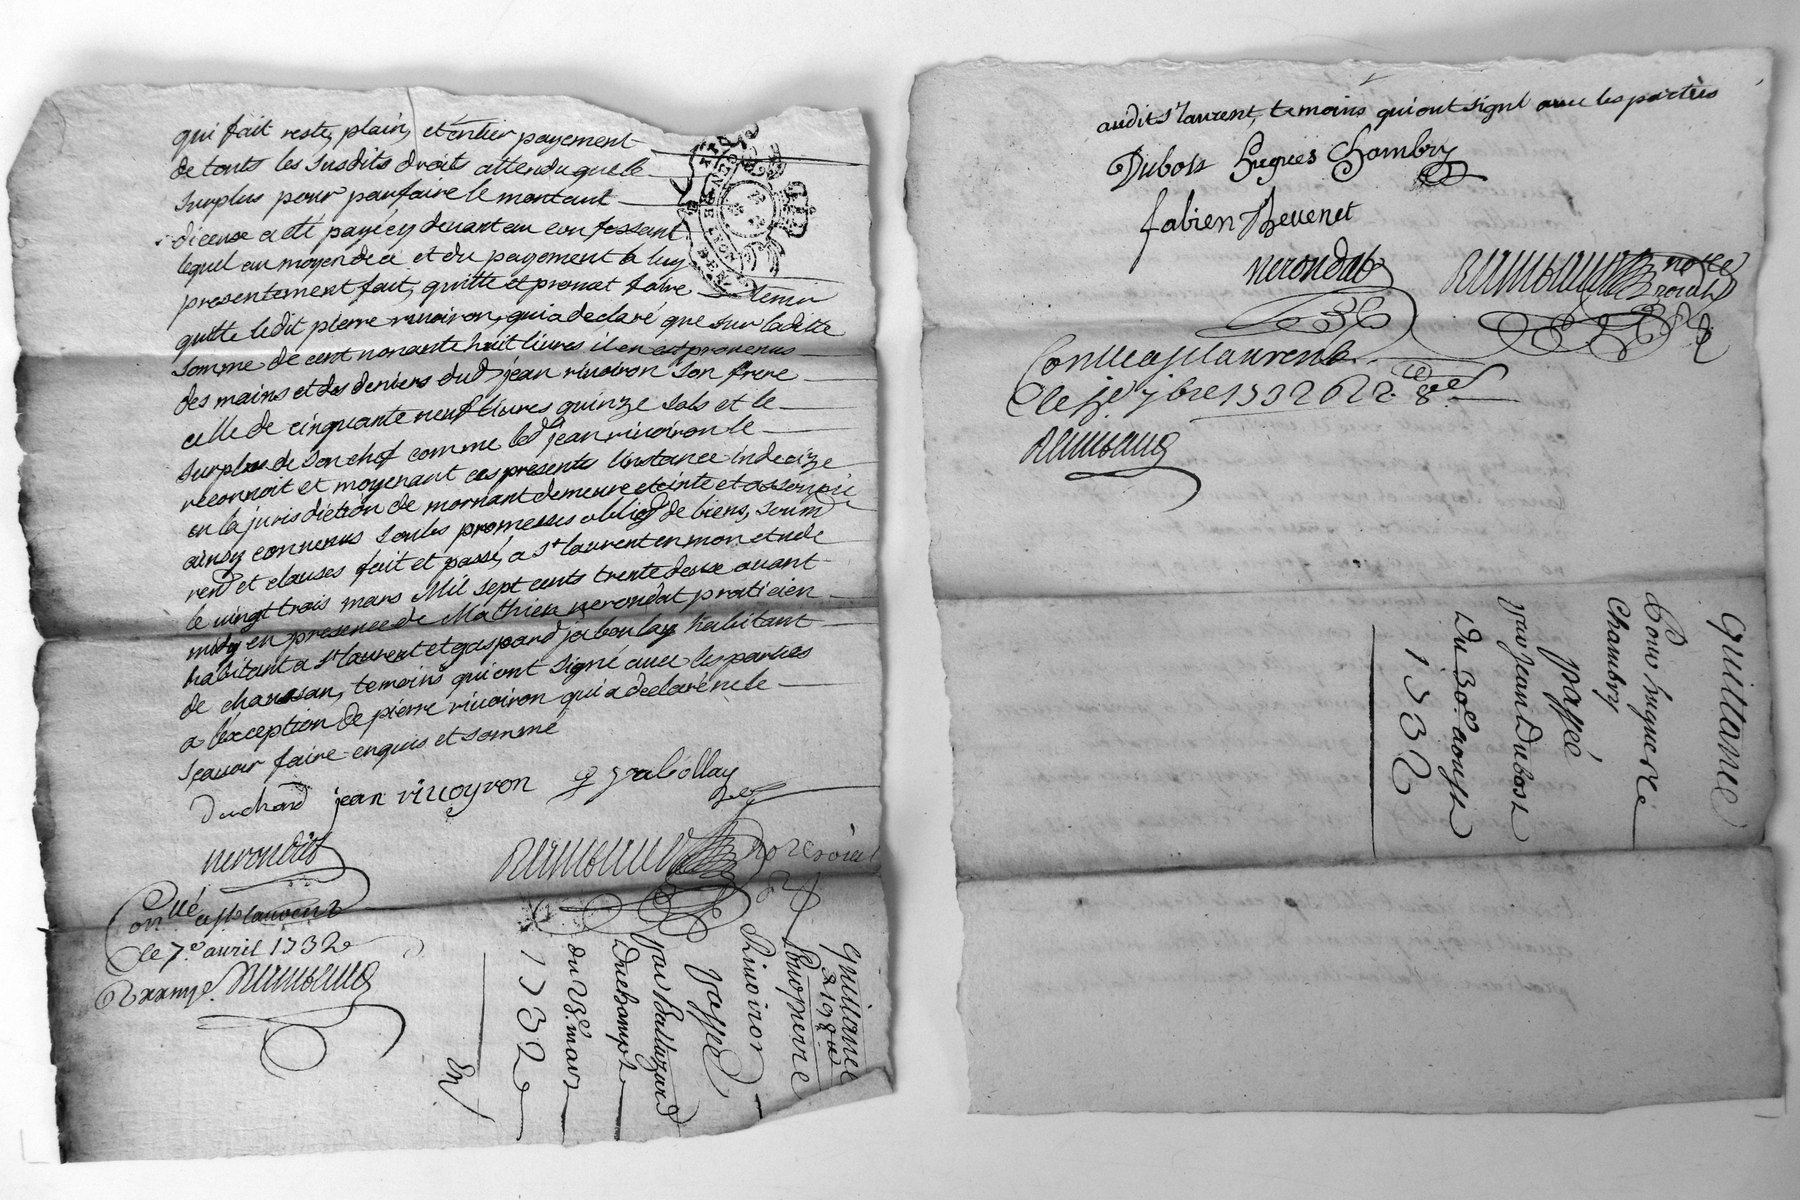 qui fait reste, plain, et entier payement
de touts les susdits droits attendu que le
surplus pour parfaire le montant
diceux a eté payé cy devant au confessant
lequel au moyen de ce et du payement a luy
presentement fait, quitte et promet faire tenir
quitte ledit pierre rivoiron, qui a declaré que sur laditte
somme de cent nonante huit livres il en est provenus
des mains et des deniers dud jean rivoiron son frere
celle de cinquante neuf livres quinze sols et le
surplus de son chef comme led jean rivoiron le
reconnoit et moyenant ces presentes linstance indecize
en la jurisdiction de mornant demeure eteinte et assoupie
ainsy convenus soubs promesses oblig de biens, soum
ren et clauses fait et passé, a st laurent en mon etude
le vingt trois mars Mil sept cents trente deux avant
midy en presence de Mathieu nerondat praticien
habitant a st laurent et gaspard jaboulay habitant
de chaussan, temoins qui ont signé avec les parties
a lexception de pierre rivoiron qui a declaré ne le
scavoir faire enquis et sommé
Duchamp jean rivoyron g jabollay
nerondat
no re roial
Con llé a st laurent
le 7e avril 1732
quittance
de 198 ll
Pour pierre
Rivoiron
passé
par Baltazard
Duchampt
du 23e mars
1732
audit st laurent, temoins qui ont signé avec les parties
Dubost hugues Chambry
fabien Thevenet
nerondat
no re
roial
Con lle a st laurent
quittance
Pour hugue
Chambry
passée
par jean Dubost
Du 30e aoust
1732